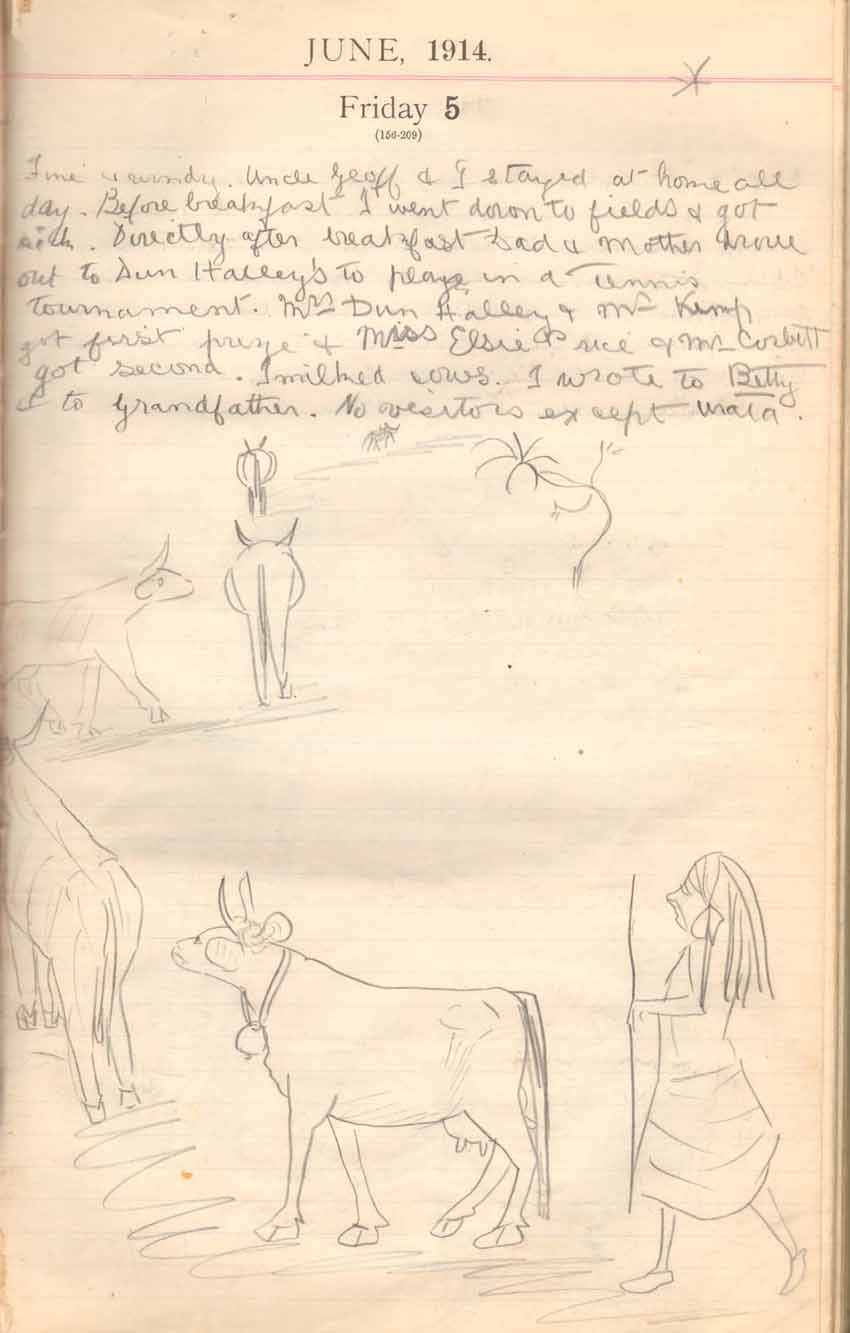 JUNE, 1914.
Friday 5
(156-209)
Fine & windy. Uncle Geoff & I stayed at home all
day. Before breakfast I went down to fields & got
Directly after breakfast Dad & Mother drove
out to Dun Halley's to play in a Tennis
tournament. Mrs Dun Halley & Mr Kemp
got first prize & Miss Elsie Price & Mr Corbett
got second. I milked cows. I wrote to Betty
& to Grandfather. No visitors except